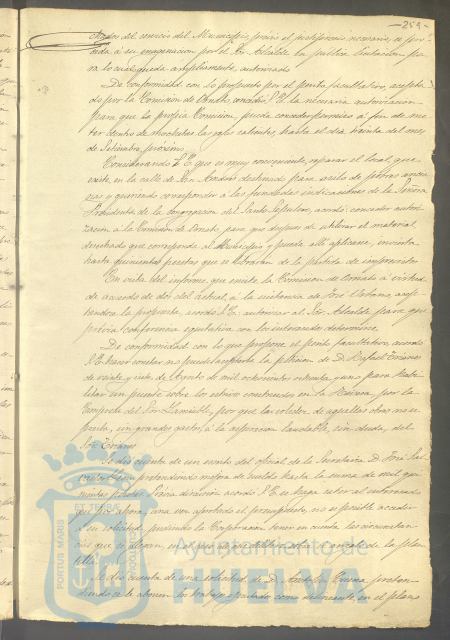 -259-
chados del servicio del Municipio, previo el justiprecio necesario, se proceda
á su enagenacion por el Sor. Alcalde en publica licitacion pa-
ra lo cual queda ampliamente autorizado
De conformidad con lo propuesto por el perito facultativo, acepta-
do por la Comision de Ornato, concedió S.E. la necesaria autorizacion
para que la propia Comision, pueda conceder permiso á fin de me-
ter dentro de
hasta el dia treinta del mes
de Setiembre próximo
Considerando S.E. que es muy conveniente, reparar el local, que
existe, en la calle de San Andrés destinado para asilo de pobres ancia-
nos y queriendo corresponder á las fundadas indicaciones de la Señora
Presidenta de la Congregacion del Santo Sepulcro, acordó: conceder autori-
zacion á la Comision de Ornato, para que despues de utilizar el material
desechado que corresponde al Municipio y puede allí aplicarse, invierta
hasta quinientas pesetas que se libraran de la partida de imprevistos
En vista del informe, que emite la Comision de Ornato á virtud
de acuerdo de dos del actual, á la instancia de José
la propuesta, acordó S.E. autorizar al Sor. Alcalde para que
previa conferencia equitativa con los interesados determine.
De conformidad con lo que propone el perito facultativo, acordó
S.E. hacer constar no puede aceptarse la peticion de D. Rafael
de veinte y siete de Agosto de mil ochocientos ochenta y uno para habi-
litar un puente sobre los esteros construidos en la
por la
Compañia del Sor.
por que las
de aquellas obras, no se
presta, sin grandes gastos, á la aspiracion laudable, sin duda, del
Sor.
Se dió cuenta de un escrito del oficial de la Secretaria D. José
pretendiendo mejora de sueldo hasta la suma de mil qui-
nientas pesetas. Previa discusion acordó S.E. se haga saber al interesado
que por ahora, una vez aprobado el presupuesto, no es posible acceder
á su solicitud, pudiendo la Corporacion tener en cuenta las circunstan-
cias que se alegan,
arreglo de la plan-
tilla.
Se dió cuenta de una solicitud de D. Antonio
preten-
diendo se le abonen los trabajos prestados como delineante, en el plano
PORTUS MARIS
Ayuntamiento de
HUELVA